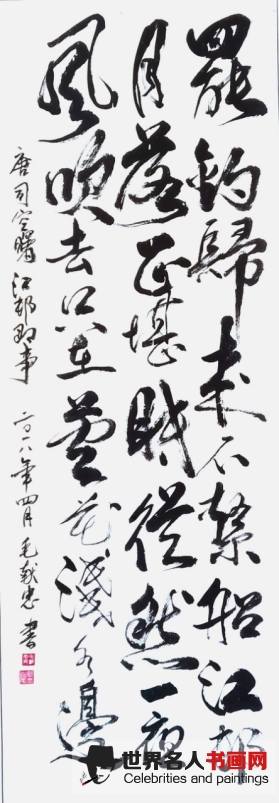 罷釣歸來不繫船江邨
月落正堪眠縱然一夜
風吹去只在蘆花淺水邊
唐司空曙江邨即事 二〇一八年四月毛献忠書
世界名人书画网
Celebrities and paintings